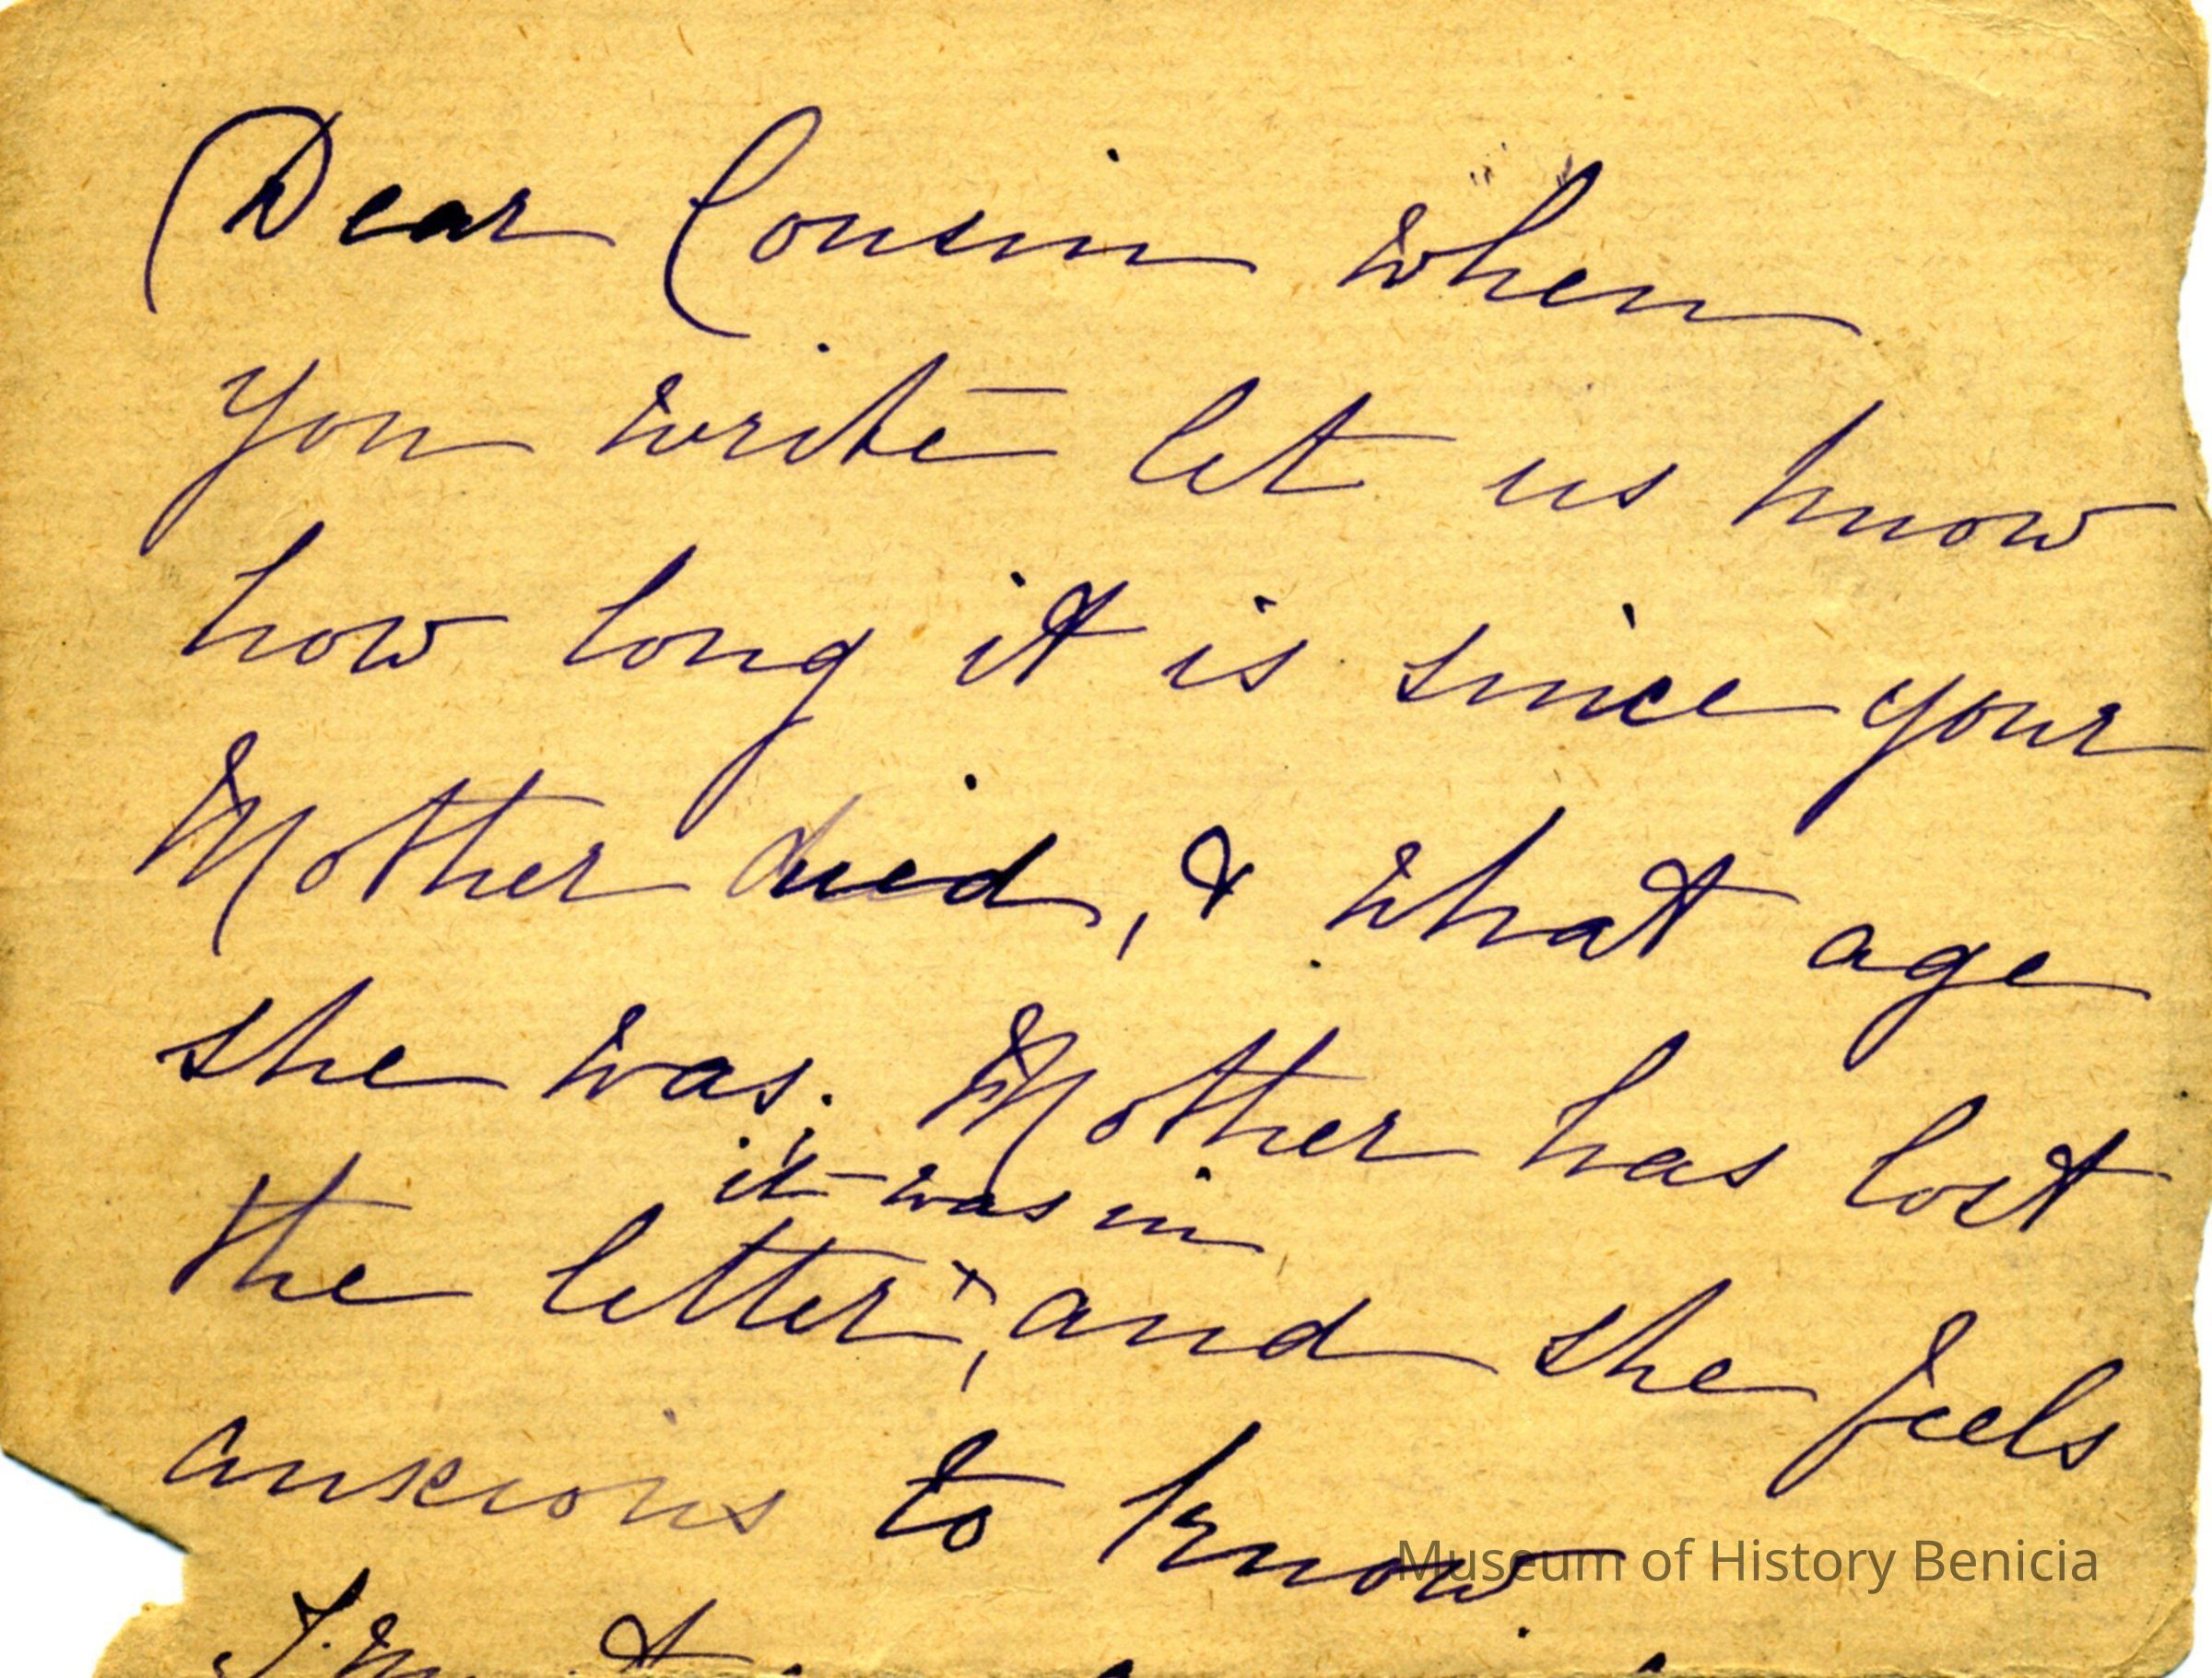 Dear Cousin when
you write let us know
how long it is since your
Mother died, & what age
she was. Mother has lost
it was in
the letter, and she feels
anxious to know.
Museum of History Benicia